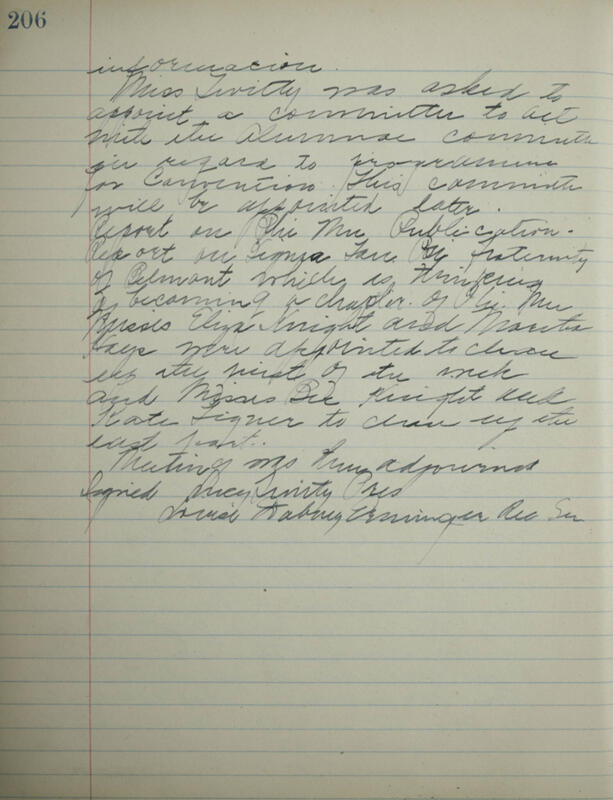 206
information.
Miss Twitty was asked to
appoint a committee to act
with the Alumnae committee
in regard to programme
for Convention. This committee
will be appointed later.
Report on Phi Mu Publication.
Report on Sigma Tau Psi fraternity
of Belmont which is thinking
of becoming a chapter of Phi Mu
Misses Eliza Knight and
Hays were appointed to clean
up the first of the week
and Misses Bee Knight and
Kate Signer to clean up the
last part.
Meeting was then adjourned
Signed Lucy Twitty Pres
Louise Dabney Rec Sec